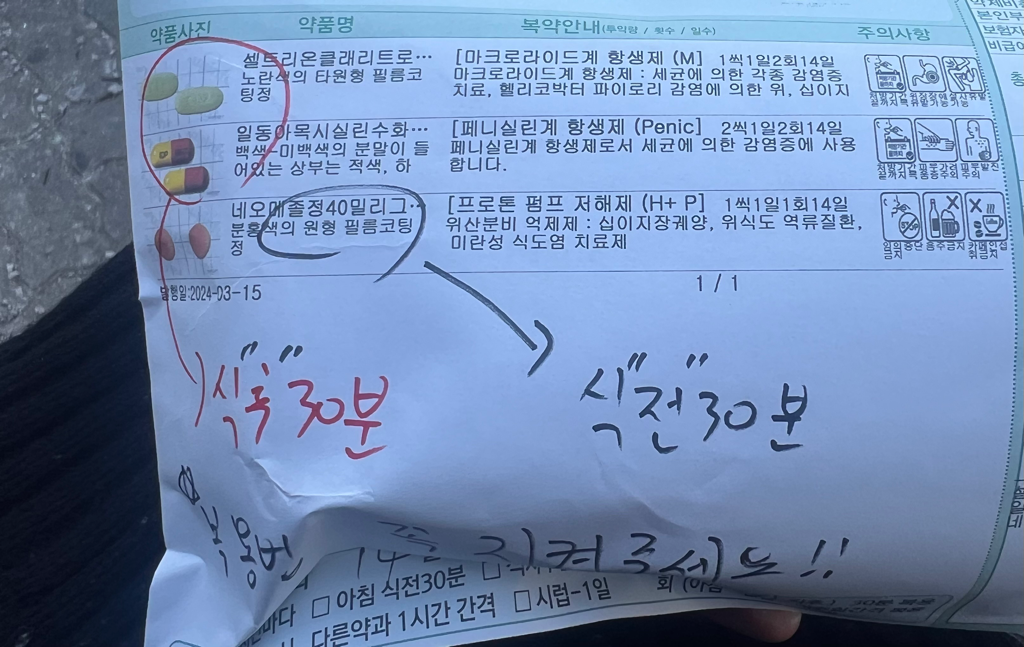 약품사진 약품명 복약안내(투약량 / 횟수 / 일수) 주의사항
셀트리온클래리트로… [마크로라이드계 항생제 (M) 1씩1일2회14일
노란색의 타원형 필름코 마크로라이드계 항생제 : 세균에 의한 각종 감염증
팅정 치료, 헬리코박터 파이로리 감염에 의한 위, 십이지
일동아목시실린수화… [페니실린계 항생제 (Penic] 2씩1일2회14일
백색~미백색의 분말이 들 페니실린계 항생제로서 세균에 의한 감염증에 사용
어있는 상부는 적색, 하 합니다.
네오메졸정40밀리그… [프로톤 펌프 저해제 (H+ P] 1씩1일1회14일
분홍색의 원형 필름코팅 위산분비 억제제 : 십이지장궤양, 위식도 역류질환,
정 미란성 식도염 치료제
임의중단금지 음주금지 카페인섭취금지
발행일:2024-03-15 1 / 1
식"후"30분 식"전"30분
복용법 꼭 지켜주세요!!
□ 아침 식전30분
다른약과 1시간 간격 □ 시럽-1일